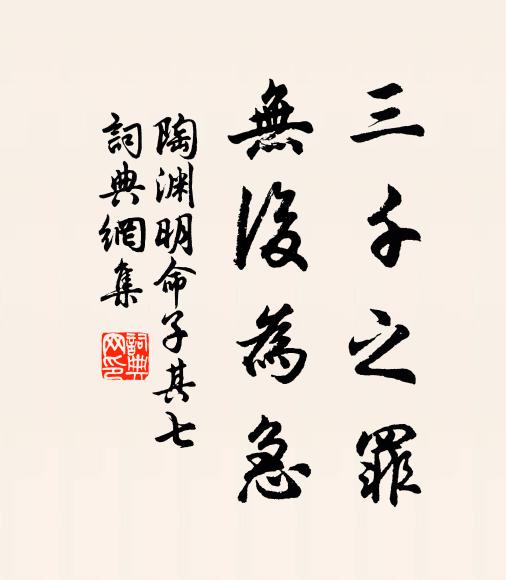 三千之罪
無後為急
陶淵明命子其七
詞典網集
詞典
网印